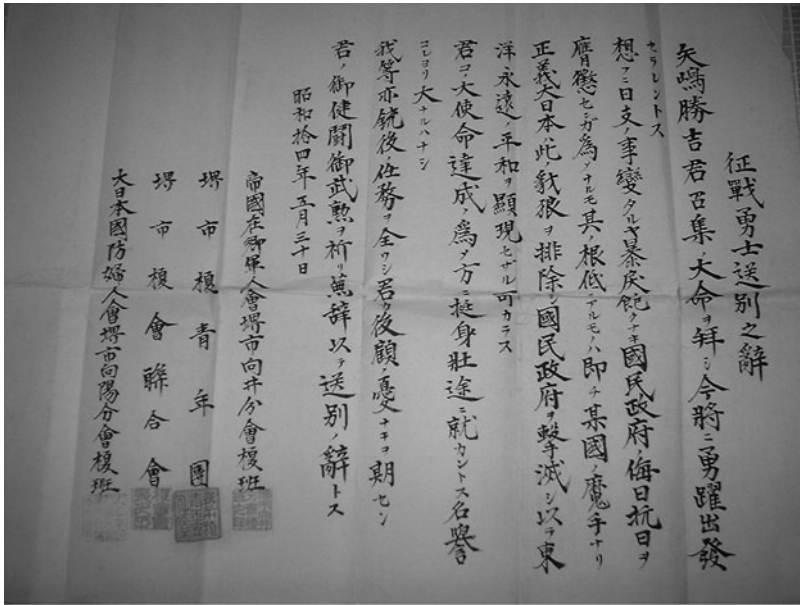 征戰勇士送別之辭
矢嶋勝吉君召集ノ大命ヲ拜シ今將ニ勇躍出發
セラレントス
想フニ日支ノ事變タルヤ暴戻飽クナキ國民政府ノ侮日抗日ヲ
膺懲センガ為メナルモ其ノ根低ニアルモノハ即チ某國ノ魔手ナリ
正義大日本ハ此豺狼ヲ排除シ國民政府ヲ擊滅シ以テ東
洋永遠ノ平和ヲ顯現セザル可カラス
君コノ大使命達成ノ為メ方ニ挺身壯途ニ就カントス名譽
コレヨリ大ナルハナシ
我等亦銃後ノ任務ヲ全ウシ君ヲ後顧ノ憂ナキヲ期セン
君ノ御健闘御武勲ヲ祈リ蕪辞以テ送別ノ辭トス
昭和拾四年五月三十日
帝國在郷軍人會堺市向井分會榎班
堺市榎青年團
堺市榎會聯合會
大日本國防婦人會堺市向陽分會榎班